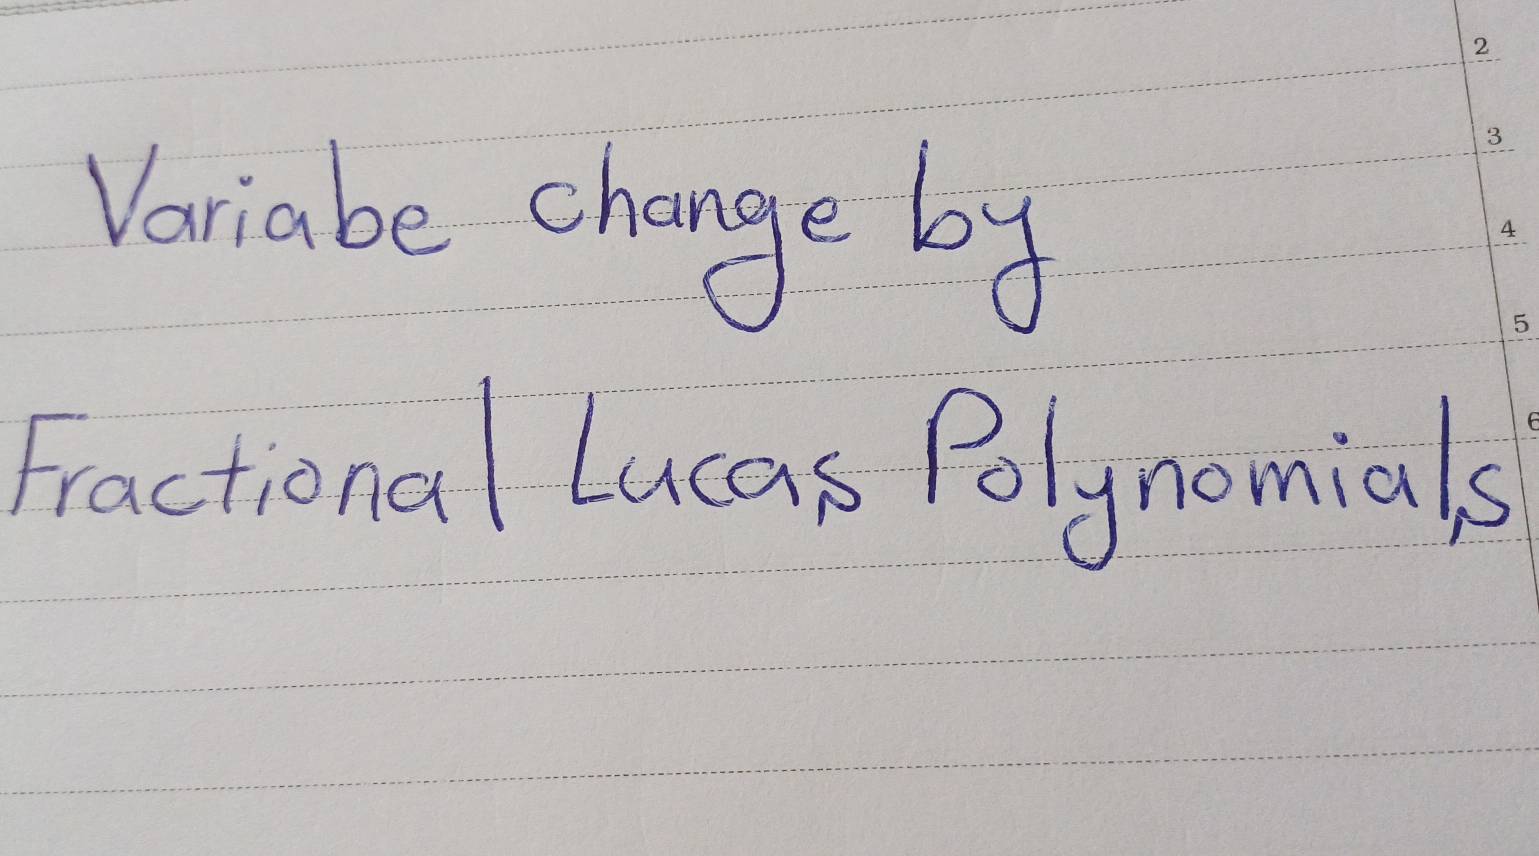 2
3
Variabe change by
4
5
Fractional Lucas Polynomials
6